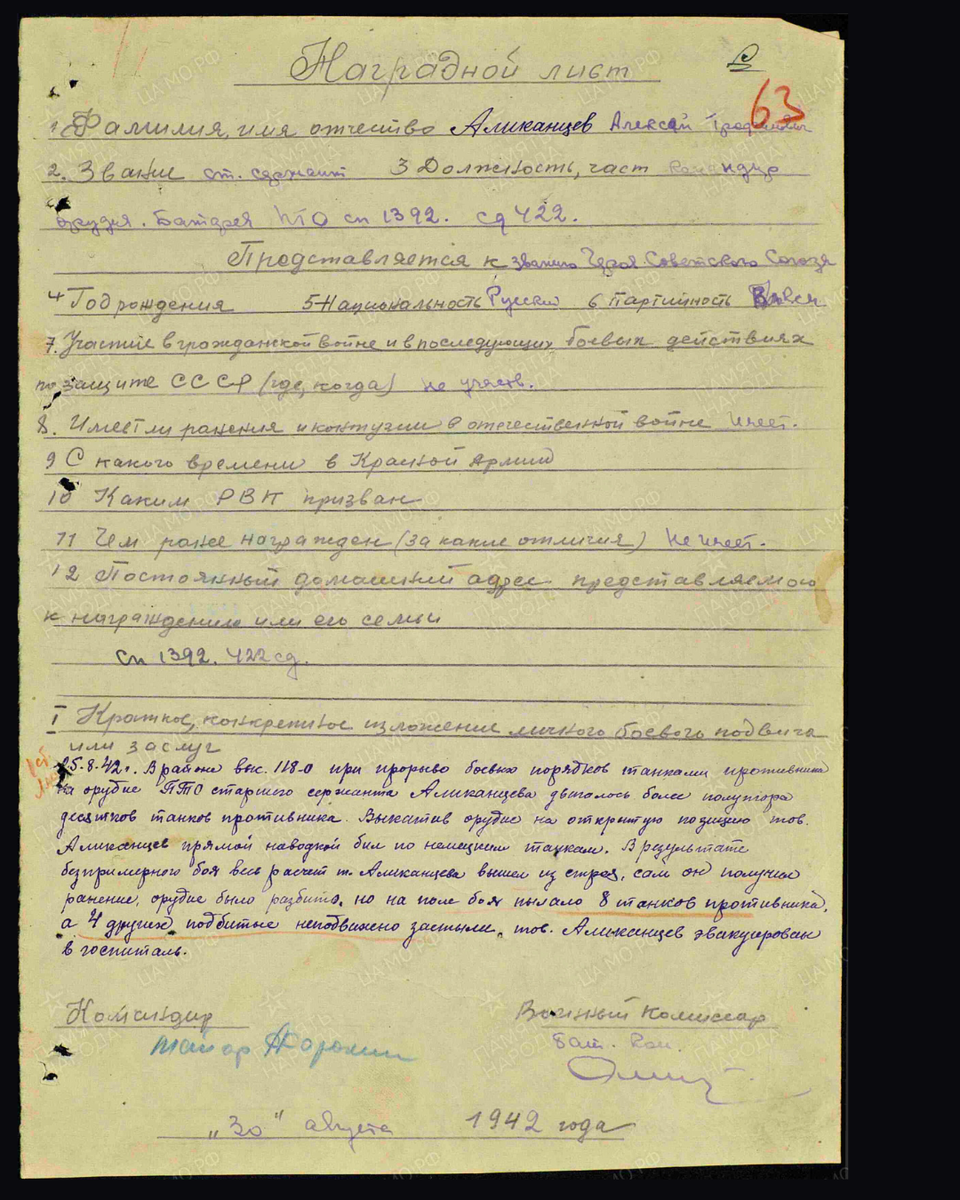 Наградной лист
63
1. Фамилия, имя отчество Аликанцев Алексей
2. Звание ст. сержант 3 Должность, част командир
орудия. Батарея ПТО сп 1392. сд 422.
Представляется к званию Героя Советского Союза
4 Год рождения 5 Национальность Русский 6 Партийность
7. Участие в гражданской войне и в последующих боевых действиях
по защите СССР (где, когда) не участв.
8. Имеет ли ранения и контузии в отечественной войне Имеет.
9 С какого времени в Красной Армии
10 Каким РВК призван
11 Чем ранее награжден (за какие отличия) Не имеет.
12 Постоянный домашний адрес представляемого
к награждению или его семьи
сп 1392. 422 сд.
I Краткое, конкретное изложение личного боевого подвига
или заслуг
25-8-42 г. В районе выс. 118.0 при прорыве боевых порядков танками противника
на орудие ПТО старшего сержанта Аликанцева двигалось более полутора
десятков танков противника. Выкатив орудие на открытую позицию тов.
Аликанцев прямой наводкой бил по немецким танкам. В результате
безпримерного боя весь расчет т. Аликанцева вышел из строя, сам он получил
ранение, орудие было разбито, но на поле боя пылало 8 танков противника,
а 4 других подбитые неподвижно застыли, тов. Аликанцев эвакуирован
в госпиталь.
Командир Военный Комиссар
майор Бат. Ком.
„30" августа 1942 года